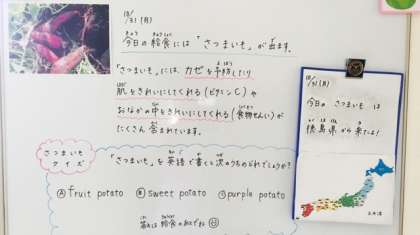 10/31(月)
今日の給食には「さつまいも」が出ます。
「さつまいも」には、カゼを予防したり
肌をきれいにしてくれる(ビタミンC)や
おなかの中をきれいにしてくれる(食物せんい)が
たくさん含まれています。
さつまいも
クイズ
「さつまいも」を英語で書くと次のうちのどれでしょうか?
Ⓐfruit potato Ⓑsweet potato Ⓒpurple potato
答えは給食のあとでね
10/31(月)
今日の さつまいも は
徳島県から来たよ!